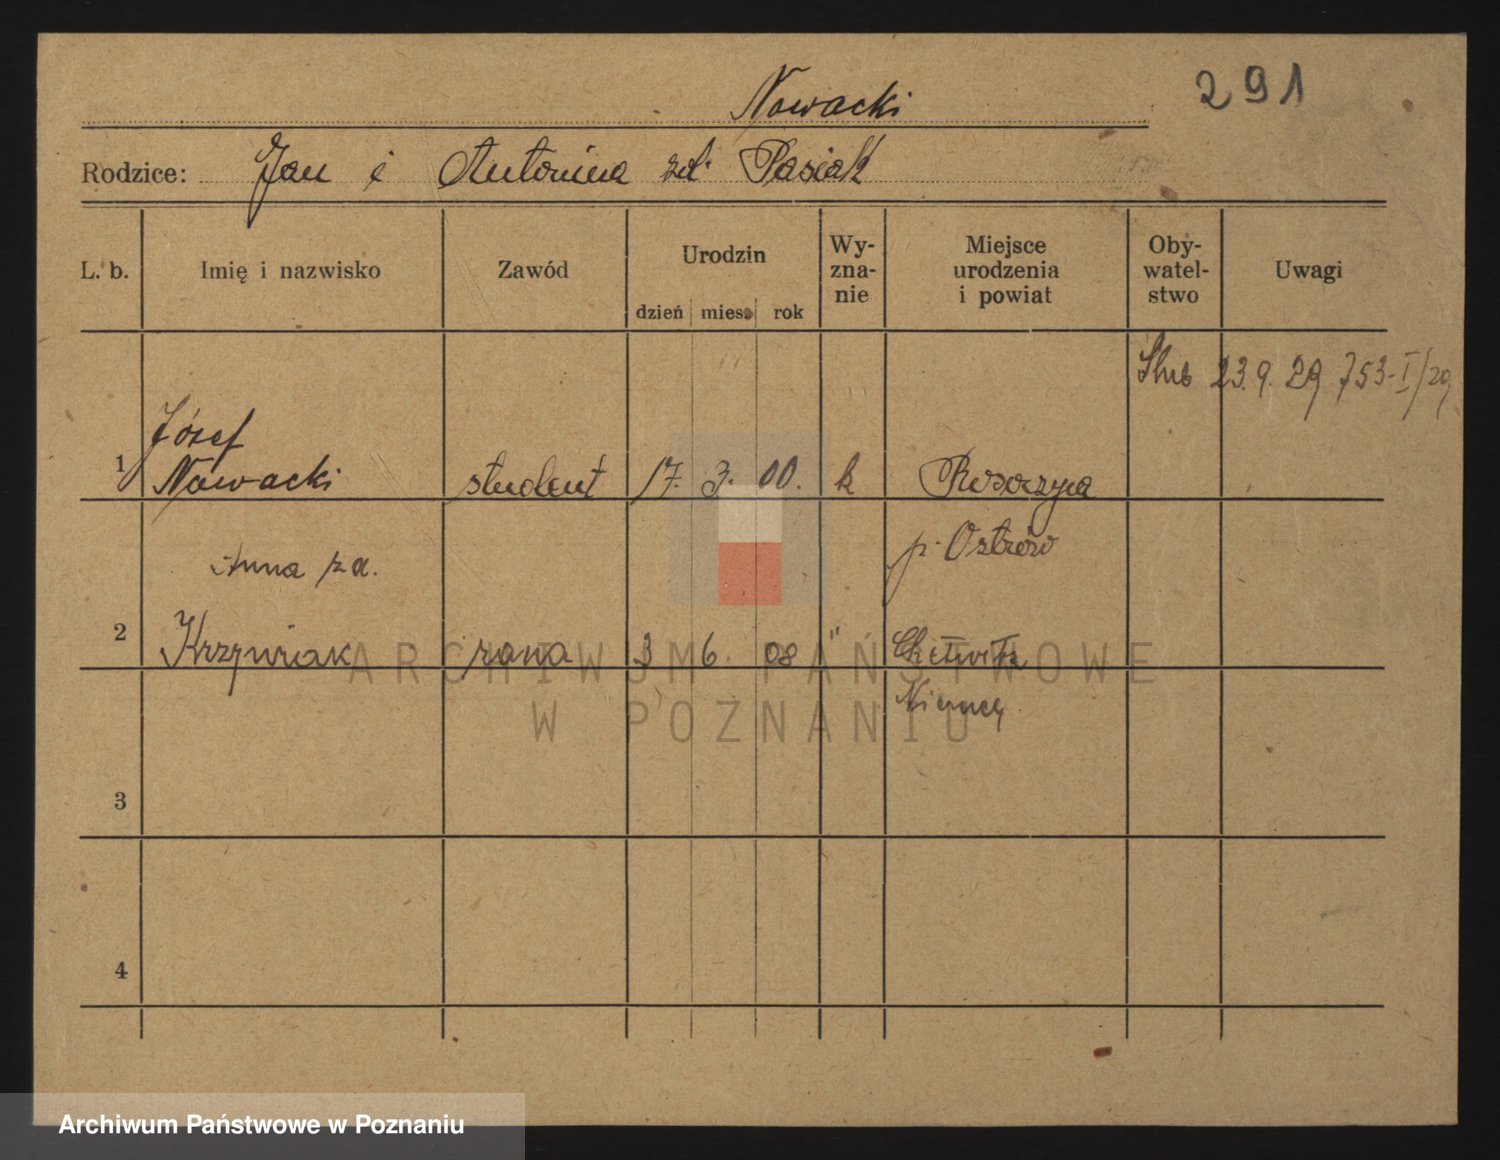 Nowacki
291
Rodzice: Jan i Antonina zd. Pasiak
L. b. Imię i nazwisko Zawód Urodzin Wy-zna-nie Miejsce urodzenia i powiat Oby-watel-stwo Uwagi
dzień mies. rok
Ślub 23.9.29 753-I/29
Józef
1 Nowacki student 17. 3. 00. k Rososzyca
p. Ostrów
Anna za.
2 Krzywiak żona 3 6. 08 "
Niemcy
3
4
ARCHIWUM PAŃSTWOWE
W POZNANIU
Archiwum Państwowe w Poznaniu